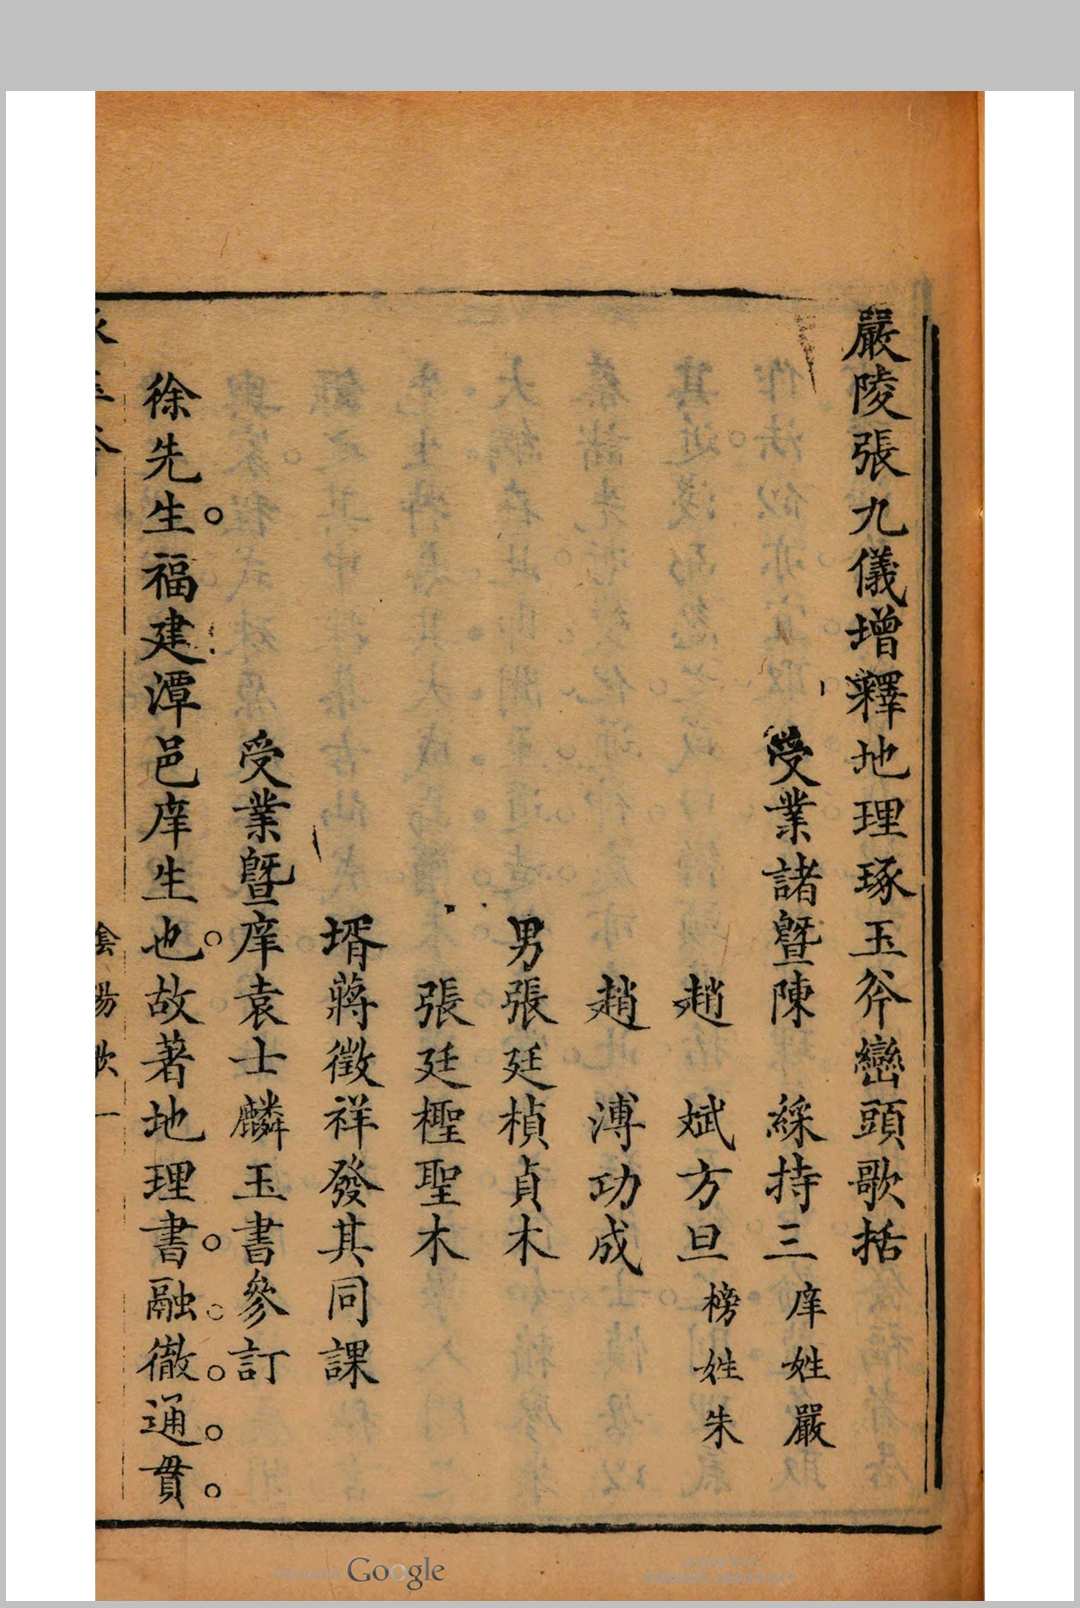 嚴陵張九儀增釋地理琢玉斧巒頭歌括
受業諸暨陳綵持三庠姓嚴
趙斌方旦榜姓朱
趙溥功成
男張廷楨貞木
張廷檉聖木
壻蔣徵祥發其同課
受業暨庠袁士麟玉書參訂
徐先生。福建潭邑庠生也。故著地理書。融。徹。通。貫。
Google